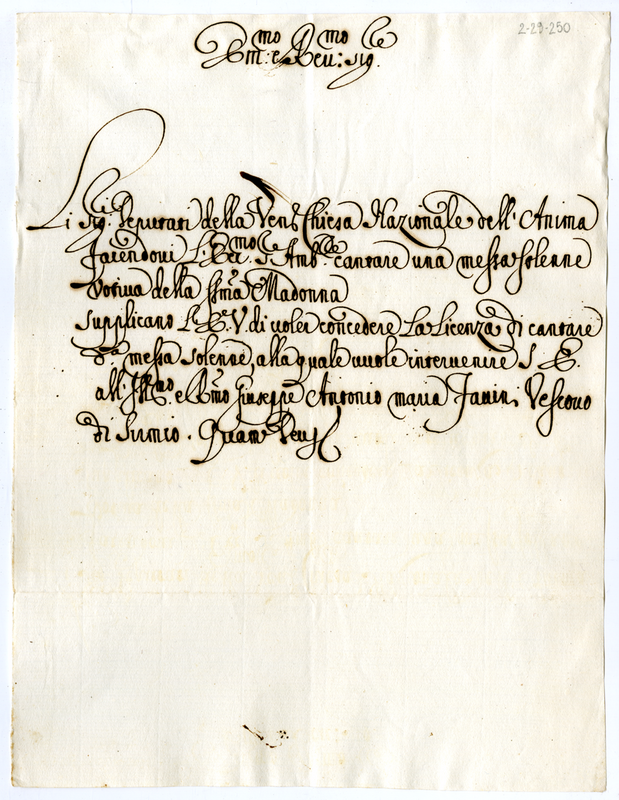 2-29-250
Em:mo e Reu:mo Sig:re
Li Sig:ri Deputati della Ven: Chiesa Nazionale dell' Anima
facendoui L' Ecc:mo S:e Amb:re cantare una messa solenne
votiua della Ss:ma Madonna
supplicano L' E. V. di voler concedere La Licenza di cantare
d:a messa solenne, alla quale vuole interuenire S. E.
all' Ill:mo e R:mo Giuseppe Antonio maria Vescouo
di Quam Deus